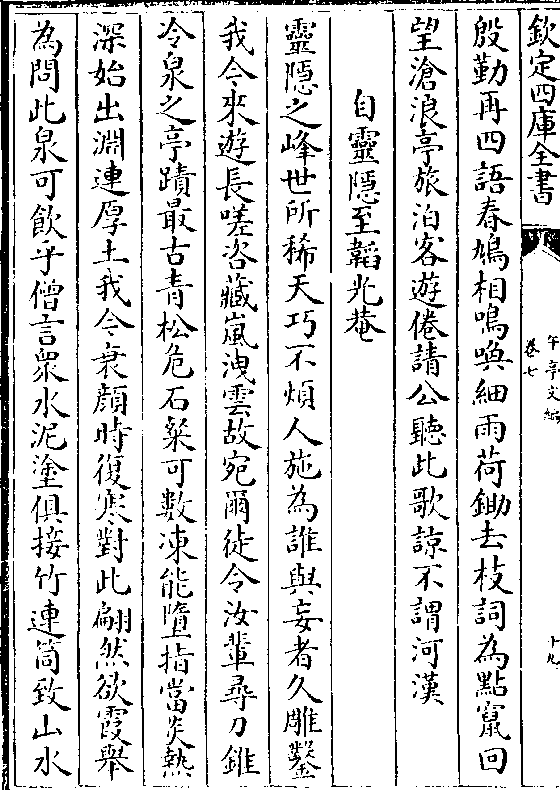 欽定四庫全書
午亭文編
卷七
十九
殷勤再四語春鳩相鳴喚細雨荷鋤去枝詞為點竄回
望滄浪亭旅泊客遊倦請公聽此歌諒不謂河漢
自靈隱至韜光菴
靈隱之峰世所稀天巧不煩人施為誰與妄者久雕鑿
我今來遊長嗟咨藏嵐洩雲故宛爾徒令汝輩尋刀錐
冷泉之亭蹟最古青松危石粲可數凍能墮指當炎熱
深始出淵連厚土我今衰顏時復寒對此翩然欲霞舉
為問此泉可飲乎僧言衆水泥塗俱接竹連筒致山水